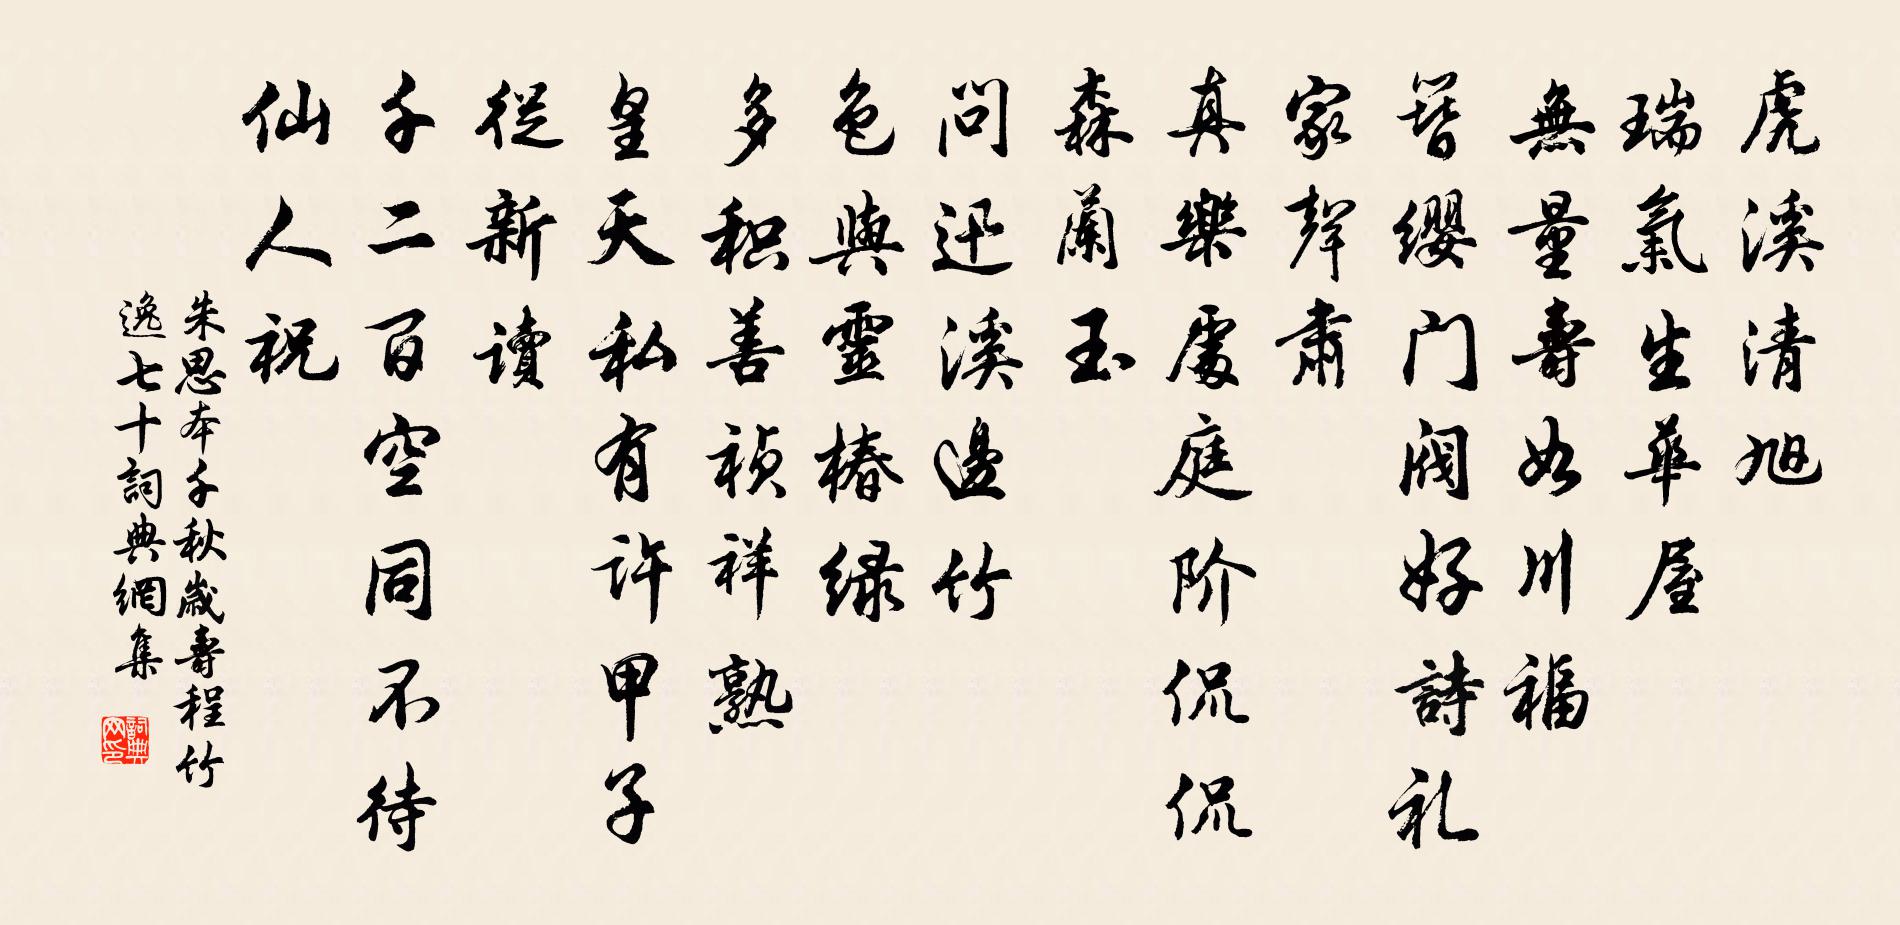 虎溪清旭
瑞氣生華屋
無量壽如川福
簪纓门阀好詩礼
家聲肅
真樂處庭阶侃侃
森蘭玉
問迅溪邊竹
色與靈椿绿
多积善祯祥熟
皇天私有许甲子
從新讀
千二百空同不待
仙人祝
朱思本千秋歲壽程竹
逸七十詞典網集
詞典网印